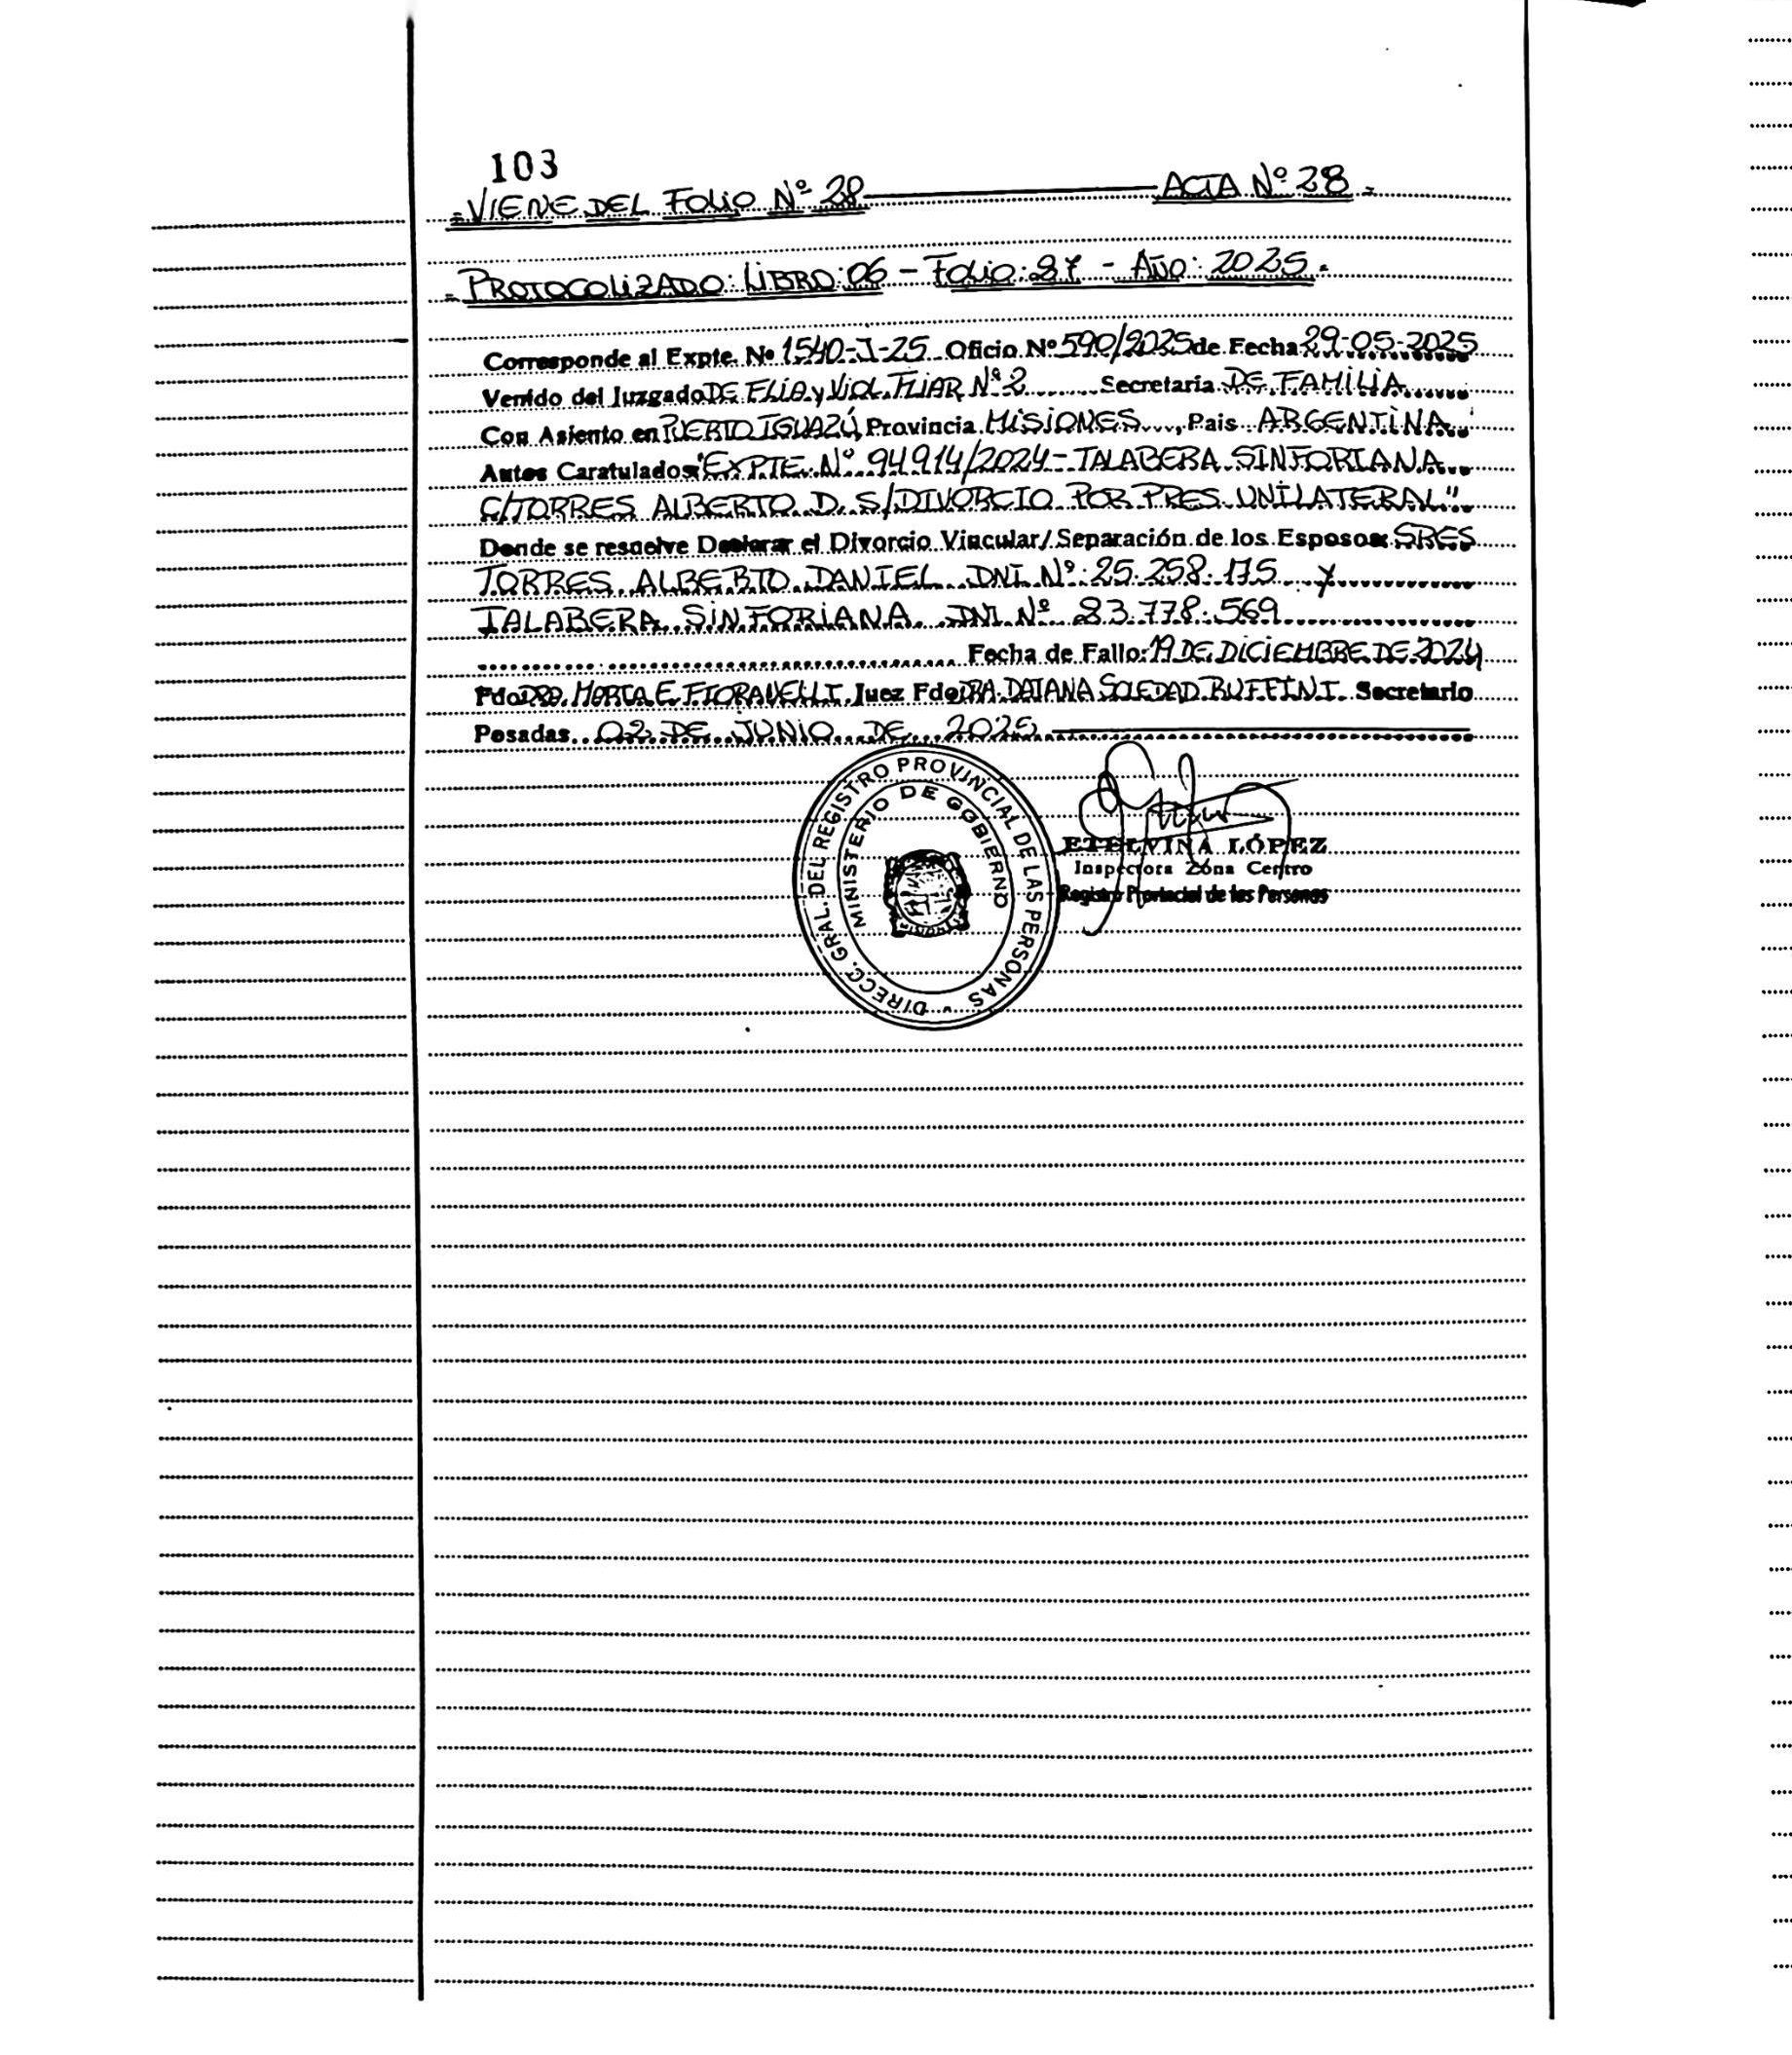 103
=VIENE DEL FOLIO Nº 28 ACTA Nº 28.=
=PROTOCOLIZADO: LIBRO: 06 - FOLIO: 87 - AÑO: 2025.=
Corresponde al Expte. Nº 1540-J-25 Oficio Nº 590/2025 de Fecha 29-05-2025
Venido del Juzgado DE FLIA y VIOL. FLIAR Nº 2 Secretaria DE FAMILIA
Con Asiento en PUERTO IGUAZÚ, Provincia MISIONES, Pais ARGENTINA
Autos Caratulados "EXPTE. Nº 94914/2024 - TALABERA SINFORIANA
C/TORRES ALBERTO D. S/DIVORCIO POR PRES. UNILATERAL"
Donde se resuelve Declarar el Divorcio Vincular/Separación de los Esposos: SRES
TORRES ALBERTO DANIEL DNI Nº: 25.258.175 y
TALABERA SINFORIANA DNI Nº 23.778.569
Fecha de Fallo: 19 DE DICIEMBRE DE 2024
Fdo DRA. MARTA E. FIORAVELLI Juez Fdo DRA. DAIANA SOLEDAD RUFFINI Secretario
Posadas 02 DE JUNIO DE 2025
DIRECC. GRAL. DEL REGISTRO PROVINCIAL DE LAS PERSONAS
MINISTERIO DE GOBIERNO
ETELVINA LÓPEZ
Inspectora Zona Centro
Registro Provincial de las Personas